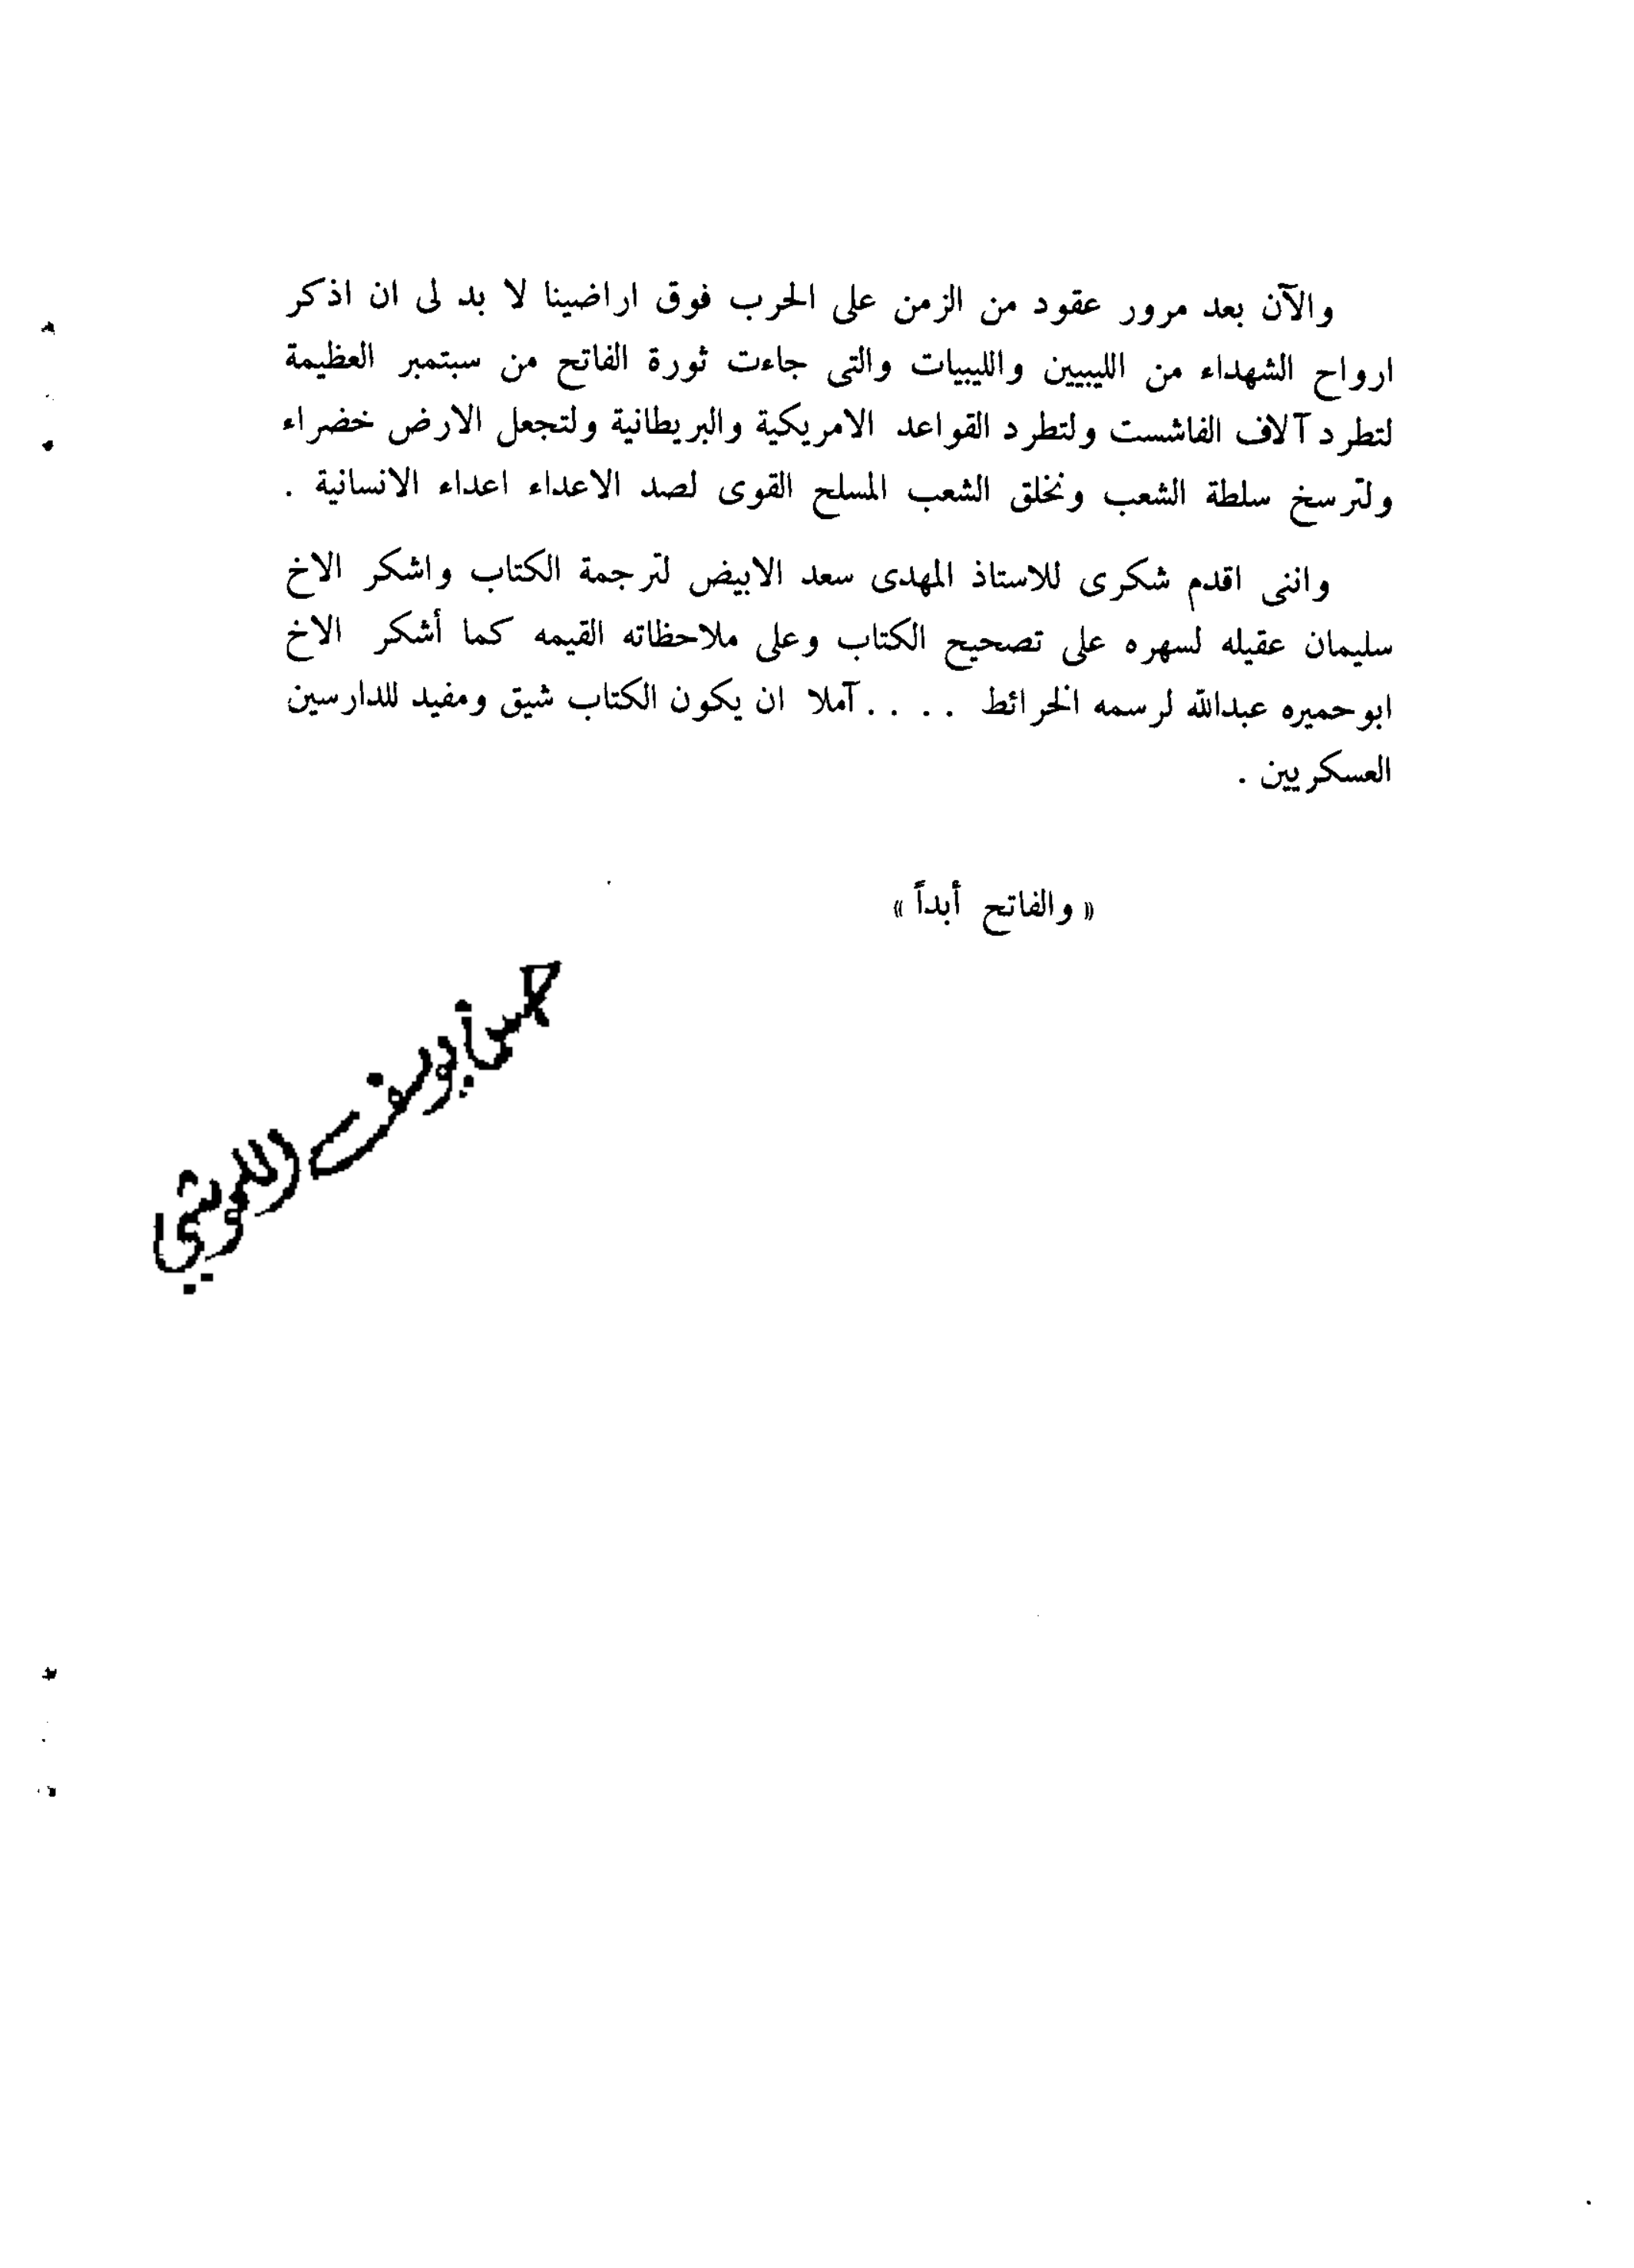 والآن بعد مرور عقود من الزمن على الحرب فوق اراضينا لا بد لى ان اذكر
ارواح الشهداء من الليبيين والليبيات والتى جاءت ثورة الفاتح من سبتمبر العظيمة
لتطرد آلاف الفاشست ولتطرد القواعد الامريكية والبريطانية ولتجعل الارض خضراء
ولترسخ سلطة الشعب ونخلق الشعب المسلح القوى لصد الاعداء اعداء الانسانية .
واننى اقدم شكرى للاستاذ المهدى سعد الابيض لترجمة الكتاب واشكر الاخ
سليمان عقيله لسهره على تصحيح الكتاب وعلى ملاحظاته القيمه كما أشكر الاخ
ابوحميره عبدالله لرسمه الخرائط . . . . آملا ان يكون الكتاب شيق ومفيد للدارسين
العسكريين .
« والفاتح أبداً »